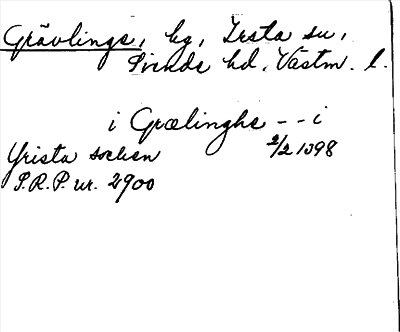 Grävlinge, by, Irsta sn,
Siende hd, Västm. l.
i Grælinghe - - i
Yrista socken 2/2 1398
S.R.P. nr. 2900